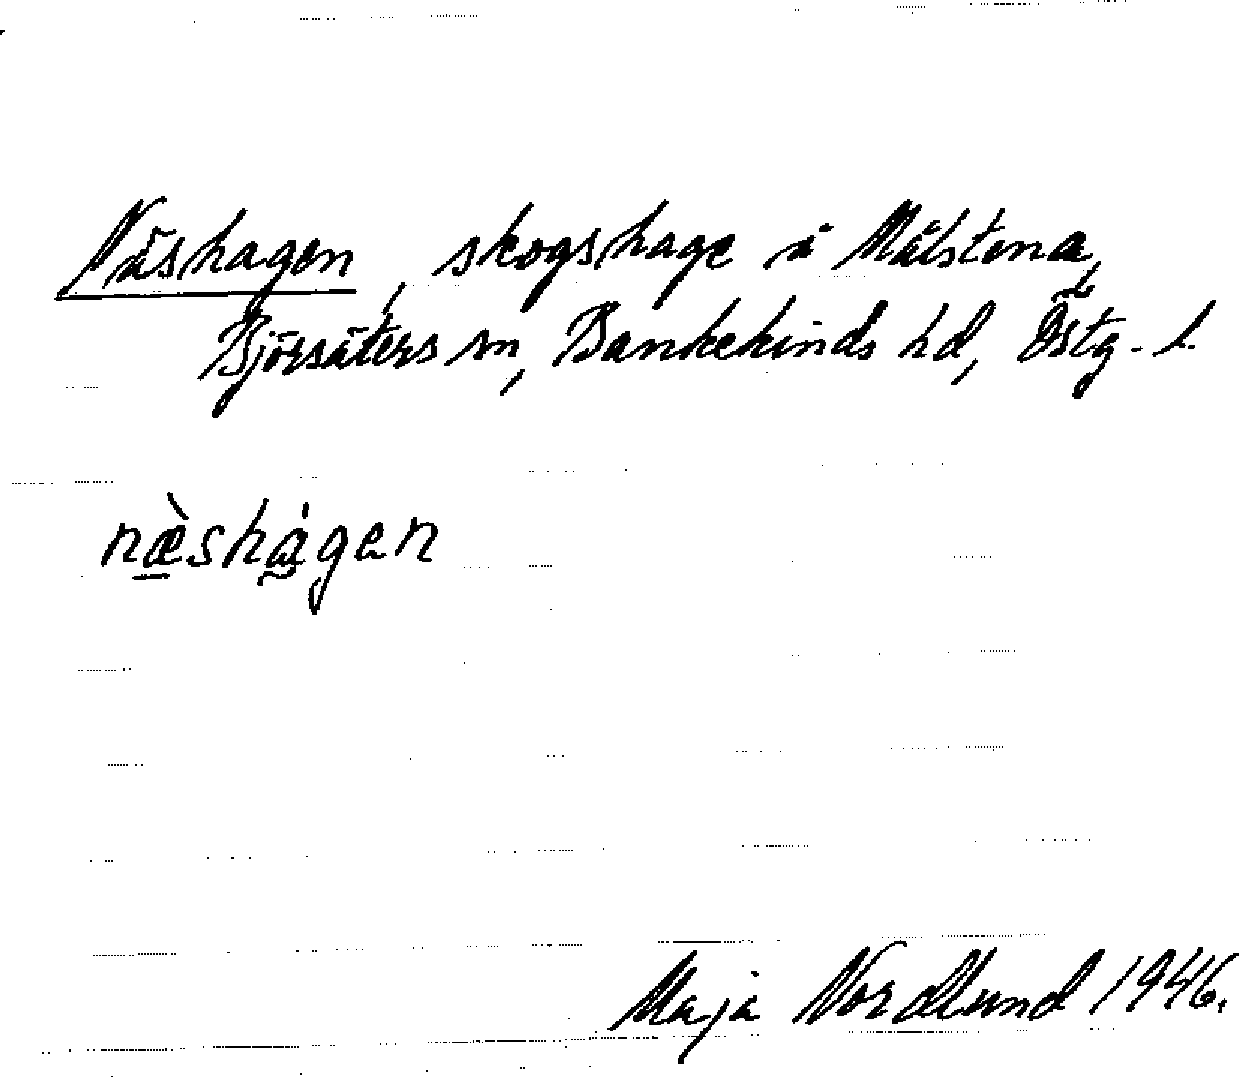 Näshagen, skogshage i Målstena,
Björsäters sn, Bankekinds hd, Östg. l.
næ̀shágen
Maja Nordlund 1946.